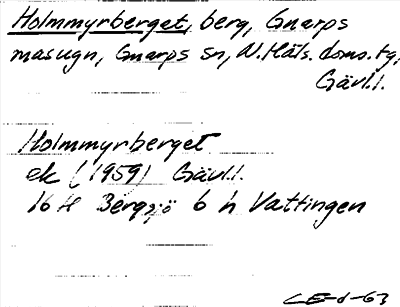 Holmmyrberget, berg, Gnarps
masugn, Gnarps sn, N. Häls. doms. tg,
Gävl.l.
Holmmyrberget
ek (1959) Gävl.l.
16 H Bergsjö 6 h Vattingen